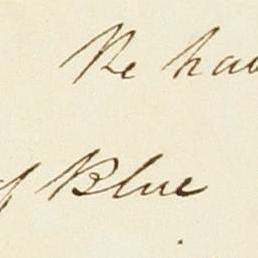 He hav
of Blue